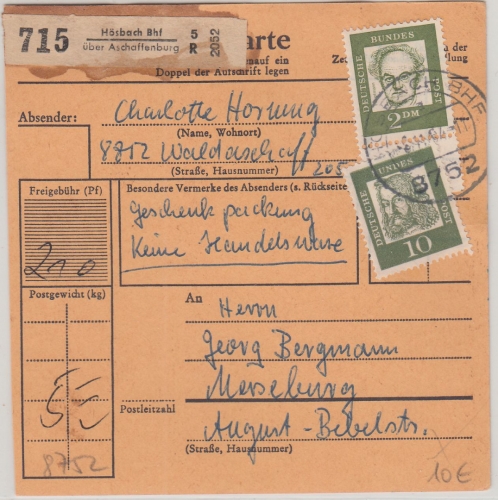 715
Hösbach Bhf
über Aschaffenburg
5
R
2052
arte
enauf ein
Doppel der Aufschrift legen
DEUTSCHE
BUNDES
POST
2 DM
Absender:
Charlotte Hornung
(Name, Wohnort)
8752 Waldaschaff
205
(Straße, Hausnummer)
BHF
8752
DEUTSCHE
BUNDES
POST
10
Freigebühr (Pf)
210
Besondere Vermerke des Absenders (s. Rückseite
Geschenkpackung
Keine Handelsware
Postgewicht (kg)
5
8752
An
Herrn
Georg Bergmann
Merseburg
Postleitzahl
August-Bebelstr.
(Straße, Hausnummer)
10€